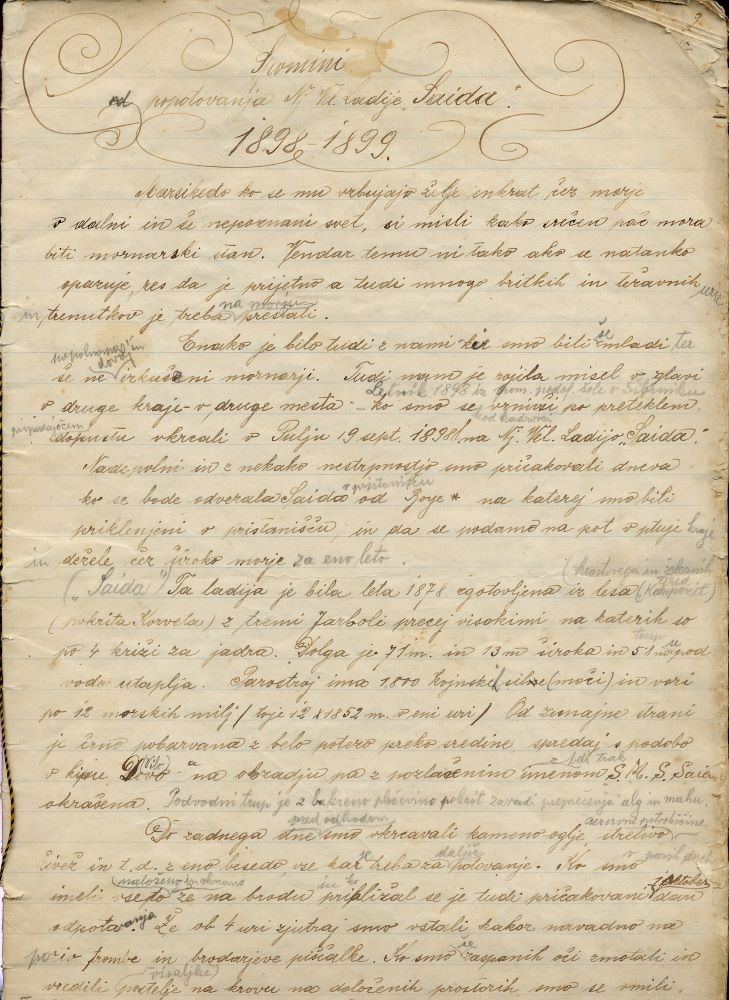 Spomini
od popotovanja Nj. Vel. Ladije „Saida".
1898-1899.
Marsikedo ko se mu vzbujajo želje enkrat čez morje
v dalni in še nepoznani svet, si misli kako srečen pač mora
biti mornarski stan. Vendar temu ni tako ako se natanko
opazuje, res da je prijetno a tudi mnogo britkih in težavnih ur
na morju
in trenutkov je treba prestati.
Enako je bilo tudi z nami ker smo bili še mladi ter
nepopolnoma dovolj in
še ne izkušeni mornarji. Tudi nam je rojila misel v glavi
Letnik 1898 iz
v druge kraje v druge mesta - ko smo se vrnivši po preteklem
pripadajočem
dopustu vkrcali v Pulju 19 sept. 1898 na Nj. Vel. Ladijo „Saida".
Nadepolni in z nekako nestrpnostjo smo pričakovali dneva
v pristanišču
ko se bode odvezala Saida od Boje * na katerej smo bili
priklenjeni v pristanišču, in da se podamo na pot v ptuje kraje
in dežele čez široko morje za eno leto.
(hrastovega in železnih
(„Saida") Ta ladija je bila leta 1878 zgotovljena iz lesa (Kompozit)
(pokrita Korveta) z tremi Jarboli precej visokimi na katerih so
trup se
po 4 križi za jadra. Dolga je 71 m. in 13 m široka in 5'8 m pod
vodo utaplja. Parostroj ima 1,800 konjske sile (moči) in vozi
po 12 morskih milj / to je 12 x 1852 m. v eni uri / Od zunajne strani
je črno pobarvana z belo potezo preko sredine, spredaj s podobo
(Vilo) z belt trak
v kipu na obzadju pa z pozlačenim imenom S. M. S. Saida
okrašena. Podvodni trup je z bakreno pločevino pokrit zavadi preprečenja alg in mahu.
pred odhodom rezervne potrebščine
Do zadnega dne smo vkrcavali kameno oglje, strelivo,
se daljše v parih dneh
živež in t. d. z eno besedo, vse kar treba za potovanje. Ko smo
naloženo in vkrcano in to 1 oktober
imeli vse to že na brodu približal se je tudi pričakovani dan
odpotovanja. Že ob 4 uri zjutraj smo vstali kakor navadno na
poziv trombe in brodarjeve piščalke. Ko smo še zaspanih oči zmotali in
(visaljke)
vredili postelje na krovu na določenih prostorih, smo se vmili.